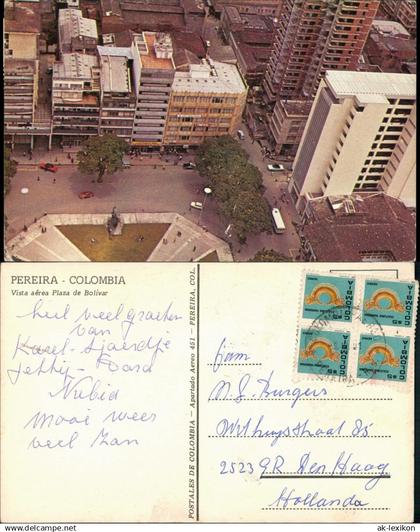 PEREIRA - COLOMBIA
Vista aérea Plaza de Bolívar
heel veel groeten
van
Karel - Sjoerdtje
Jetty - Foora
Nubia
Mooi weer
veel Zon
POSTALES DE COLOMBIA — Apartado Aereo 451 — PEREIRA, COL.
COLOMBIA
COLOMBIA
COLOMBIA
COLOMBIA
fam
M. J. Burgers
Withuysstraat 85
2523 GR Den Haag
Hollanda
© oldthing.de www.ak-lexikon.de